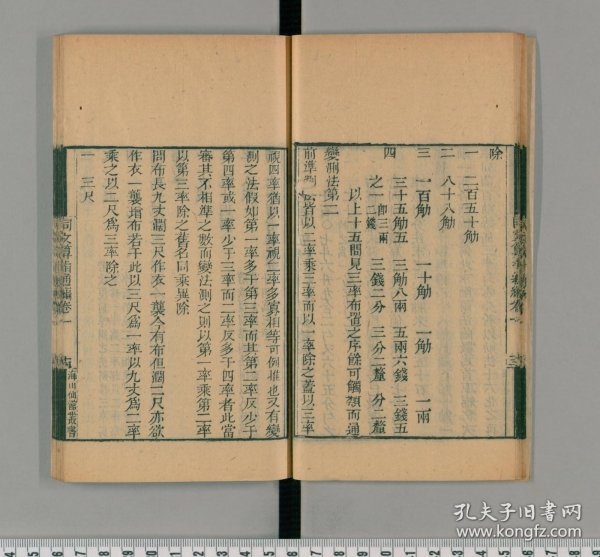 除
一 二百五十觔
二 八十八觔
三 一百觔 一十觔 一觔 一兩
四 三十五觔五 三觔八兩 五兩六錢 三錢五
之一 卽三兩二錢 三錢二分 三分二釐 分二釐
以上十五問見三率布置之序餘可觸類而通
變測法第二
前準 法皆以二率乘三率而以一率除之蓋以三率
視四率猶以一率視二率多寡相等可例推也又有變
測之法假如第一率多于第三率而其第二率反少于
第四率或一率少于三率而二率反多于四率者此當
審其不相準之數而變法測之則以第一率乘第二率
以第三率除之舊名同乘異除
問布長九丈闊三尺作衣一襲今有布但闊二尺亦欲
作衣一襲增布若干此以三尺爲一率以九丈爲二率
乘之以二尺爲三率除之
一 三尺
同文算指通編卷一
海山仙館叢書
孔夫子旧书网
www.kongfz.com